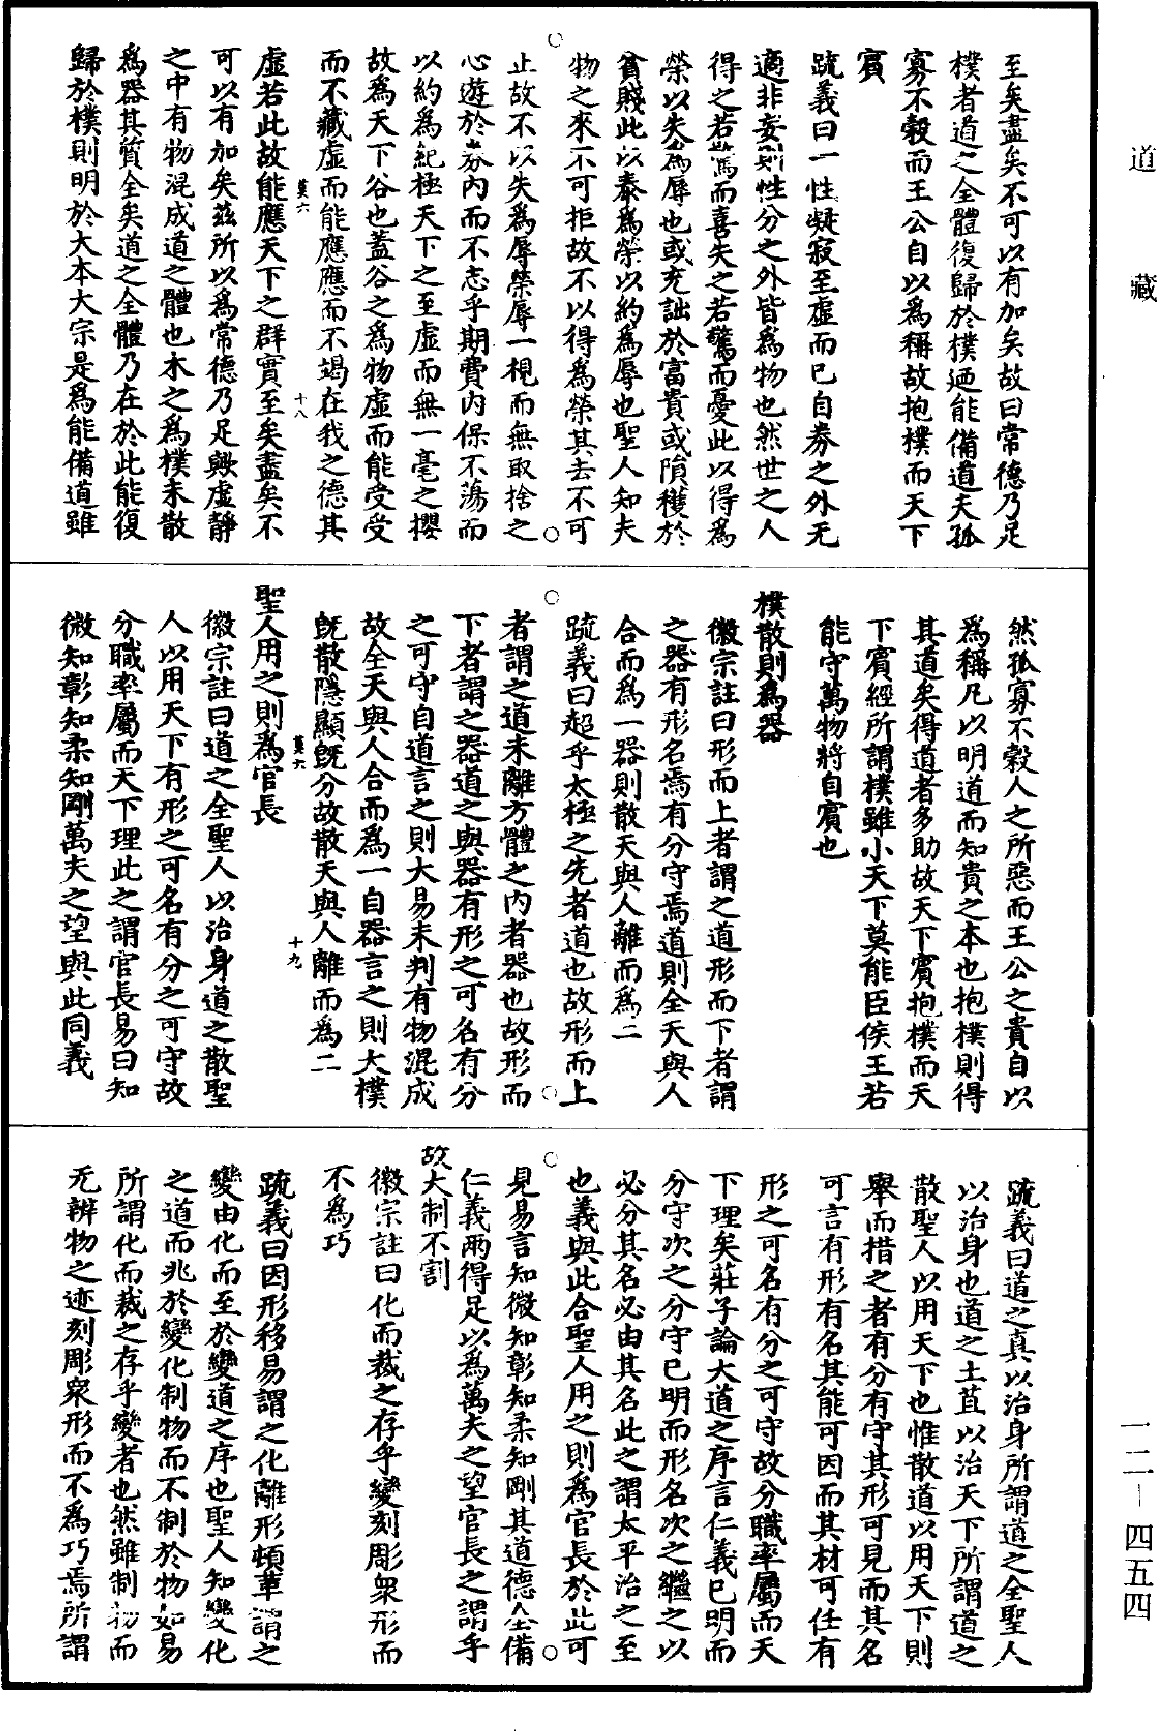 道藏
至矣盡矣不可以有加矣故曰常德乃足
樸者道之全體復歸於樸迺能備道夫孤
寡不穀而王公自以爲稱故抱樸而天下
賓
疏義曰一性凝寂至虛而已自券之外无
適非妄則性分之外皆爲物也然世之人
得之若驚而喜失之若驚而憂此以得爲
榮以失爲辱也或充詘於富貴或隕穫於
貧賤此以泰爲榮以約爲辱也聖人知夫
物之來不可拒故不以得爲榮其去不可
止故不以失爲辱榮辱一視而無取捨之
心遊於券內而不志乎期費內保不蕩而
以約爲紀極天下之至虛而無一毫之攖
故爲天下谷也蓋谷之爲物虛而能受受
而不藏虛而能應應而不竭在我之德其
莫六
十八
虛若此故能應天下之群實至矣盡矣不
可以有加矣茲所以爲常德乃足歟虛靜
之中有物混成道之體也木之爲樸未散
爲器其質全矣道之全體乃在於此能復
歸於樸則明於大本大宗是爲能備道雖
然孤寡不穀人之所惡而王公之貴自以
爲稱凡以明道而知貴之本也抱樸則得
其道矣得道者多助故天下賓抱樸而天
下賓經所謂樸雖小天下莫能臣侯王若
能守萬物將自賓也
樸散則爲器
徽宗註曰形而上者謂之道形而下者謂
之器有形名焉有分守焉道則全天與人
合而爲一器則散天與人離而爲二
疏義曰超乎太極之先者道也故形而上
者謂之道未離方體之內者器也故形而
下者謂之器道之與器有形之可名有分
之可守自道言之則大易未判有物混成
故全天與人合而爲一自器言之則大樸
旣散隱顯旣分故散天與人離而爲二
莫六
十九
聖人用之則爲官長
徽宗註曰道之全聖人以治身道之散聖
人以用天下有形之可名有分之可守故
分職率屬而天下理此之謂官長易曰知
微知彰知柔知剛萬夫之望與此同義
疏義曰道之真以治身所謂道之全聖人
以治身也道之土苴以治天下所謂道之
散聖人以用天下也惟散道以用天下則
舉而措之者有分有守其形可見而其名
可言有形有名其能可因而其材可任有
形之可名有分之可守故分職率屬而天
下理矣莊子論大道之序言仁義已明而
分守次之分守已明而形名次之繼之以
必分其名必由其名此之謂太平治之至
也義與此合聖人用之則爲官長於此可
見易言知微知彰知柔知剛其道德全備
仁義兩得足以爲萬夫之望官長之謂乎
故大制不割
徽宗註曰化而裁之存乎變刻彫衆形而
不爲巧
疏義曰因形移易謂之化離形頓革謂之
變由化而至於變道之序也聖人知變化
之道而兆於變化制物而不制於物如易
所謂化而裁之存乎變者也然雖制物而
无辨物之迹刻彫衆形而不爲巧焉所謂
一二—四五四